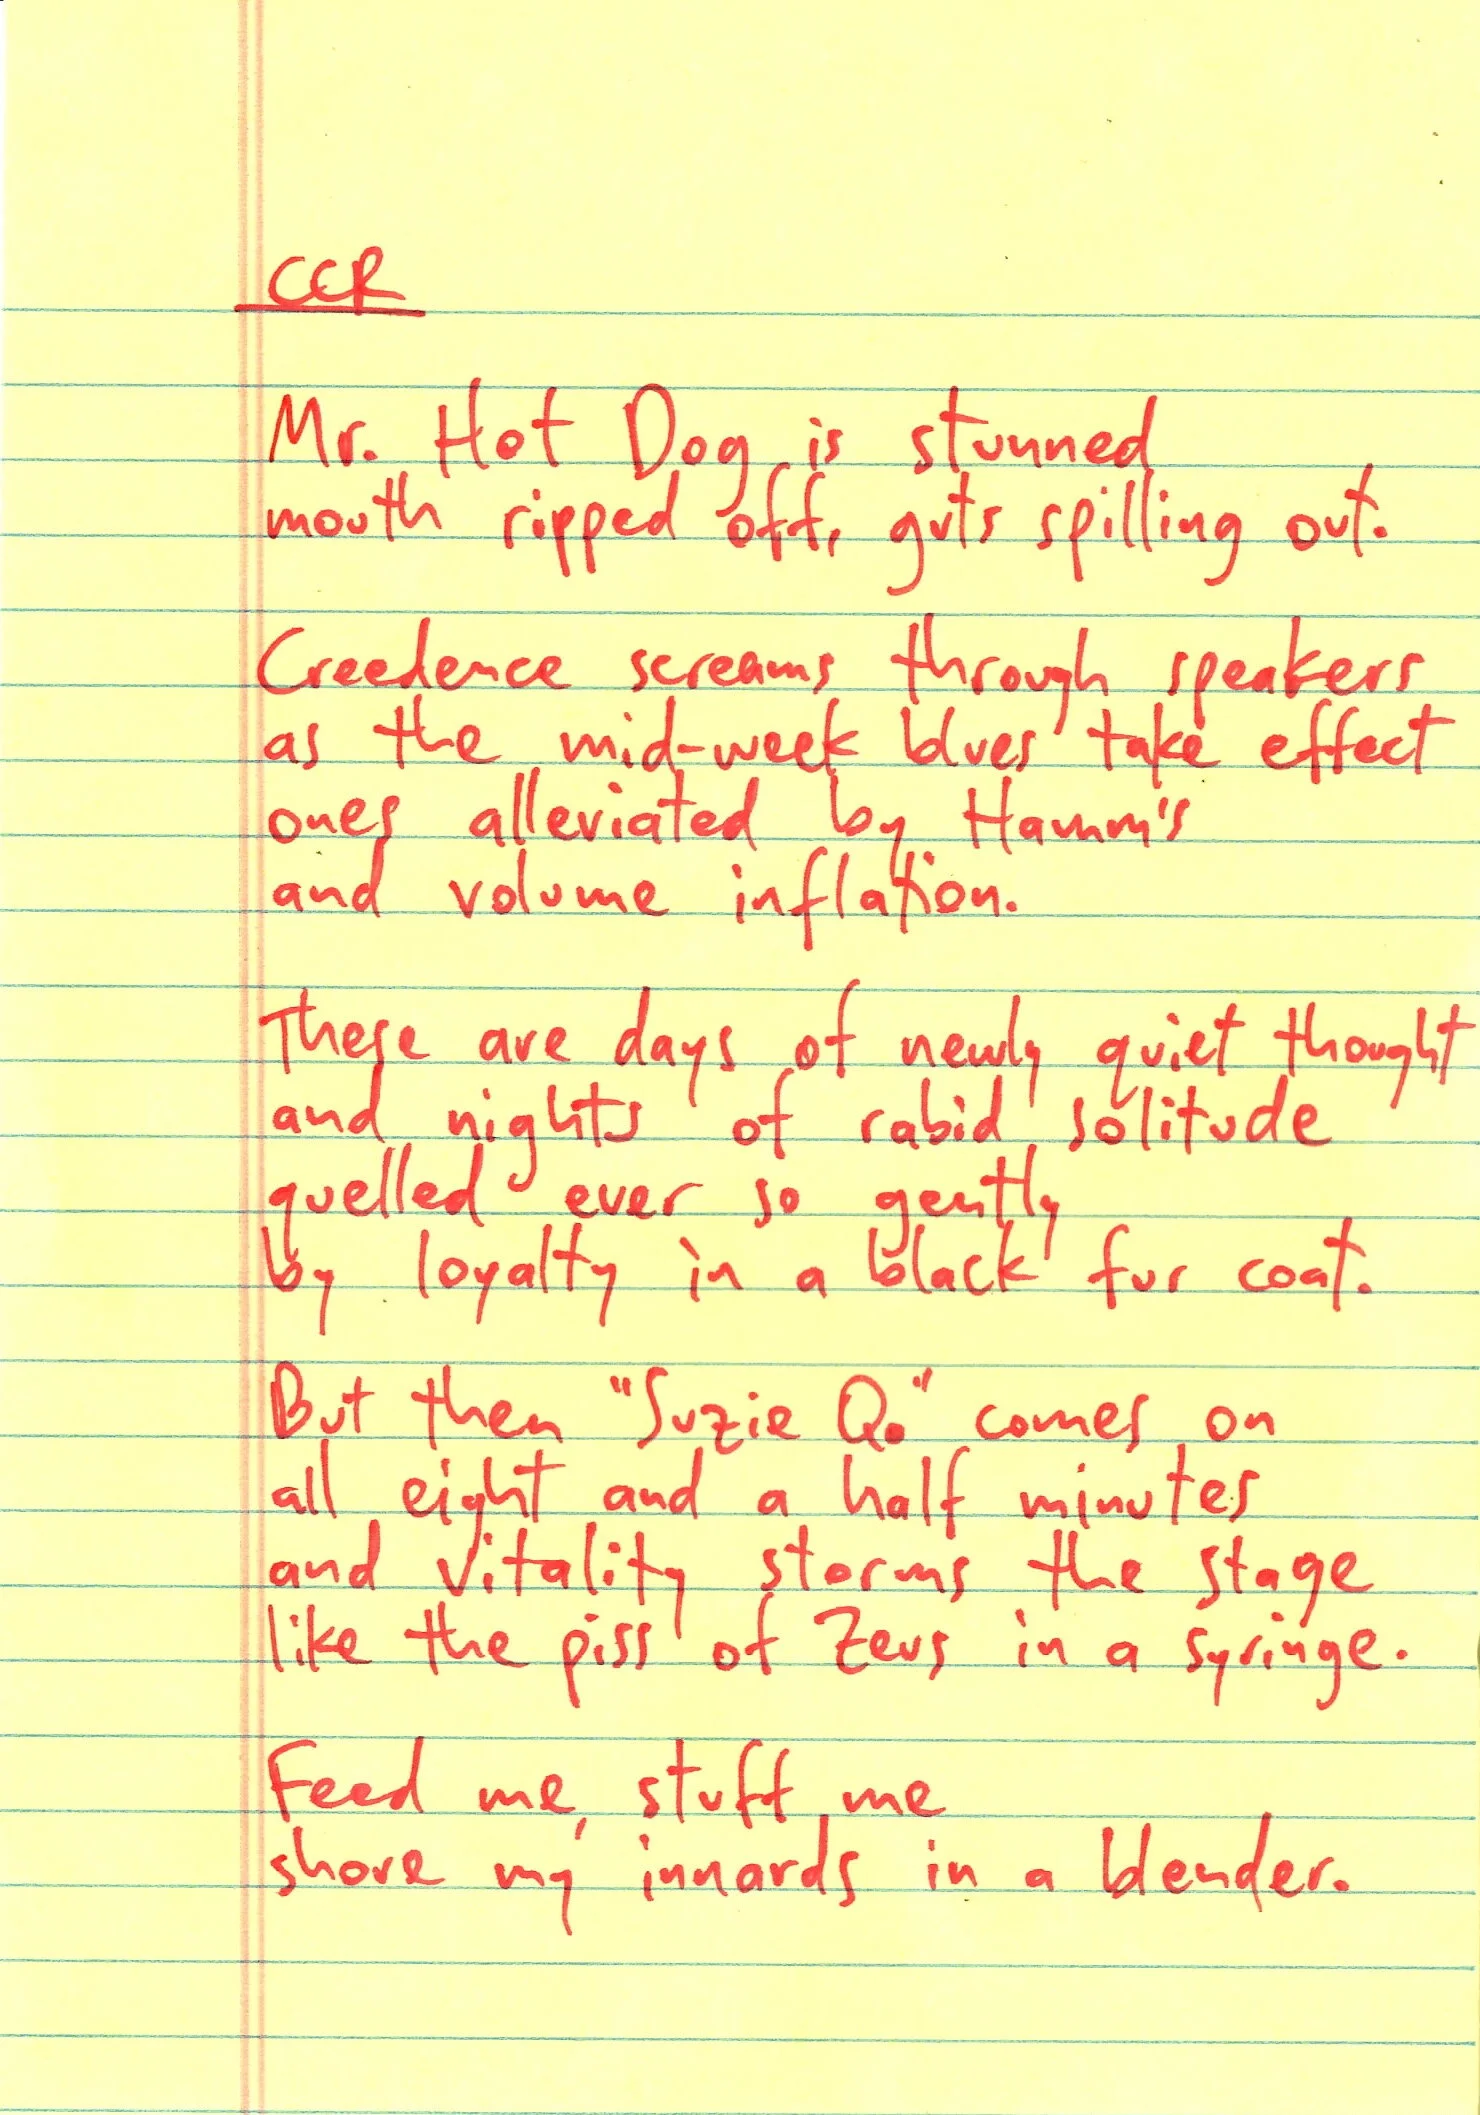 CCR
Mr. Hot Dog is stunned
mouth ripped off, guts spilling out.
Creedence screams through speakers
as the mid-week blues take effect
ones alleviated by Hamm's
and volume inflation.
These are days of newly quiet thought
and nights of rabid solitude
quelled ever so gently
by loyalty in a black fur coat.
But then "Suzie Q." comes on
all eight and a half minutes
and vitality storms the stage
like the piss of Zeus in a syringe.
Feed me, stuff me
shove my innards in a blender.